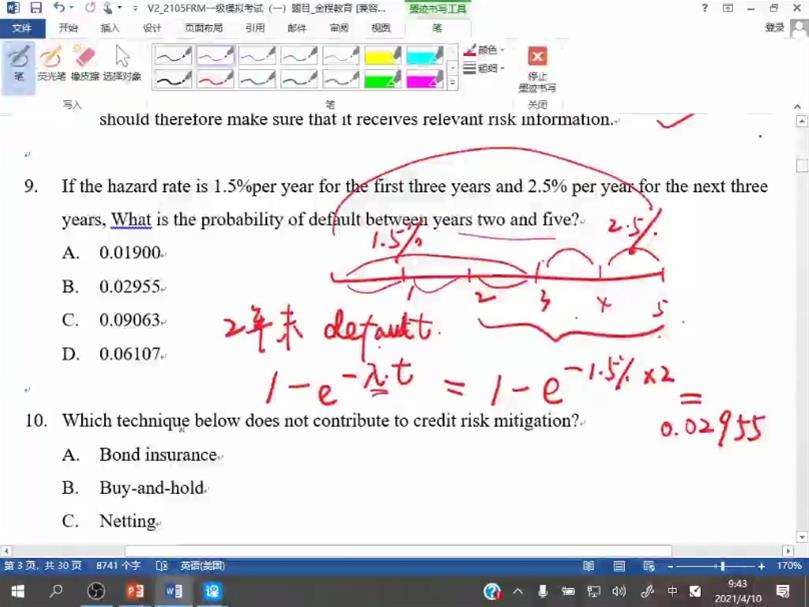 V2_2105FRM一级模拟考试（一）题目_金程教育 [兼容...
墨迹书写工具
登录
文件 开始 插入 设计 页面布局 引用 邮件 审阅 视图 笔
笔 荧光笔 橡皮擦 选择对象
颜色
粗细
停止
墨迹书写
写入 笔 关闭
should therefore make sure that it receives relevant risk information.
9. If the hazard rate is 1.5%per year for the first three years and 2.5% per year for the next three
years, What is the probability of default between years two and five?
1.5% 2.5%
A. 0.01900
B. 0.02955
C. 0.09063
D. 0.06107
1 2 3 4 5
2年末 default.
1-e^-λ.t = 1-e^-1.5%×2 =
0.02955
10. Which technique below does not contribute to credit risk mitigation?
A. Bond insurance
B. Buy-and-hold
C. Netting
第 3 页，共 30 页 8741 个字 英语(美国) 170%
中 9:43
2021/4/10